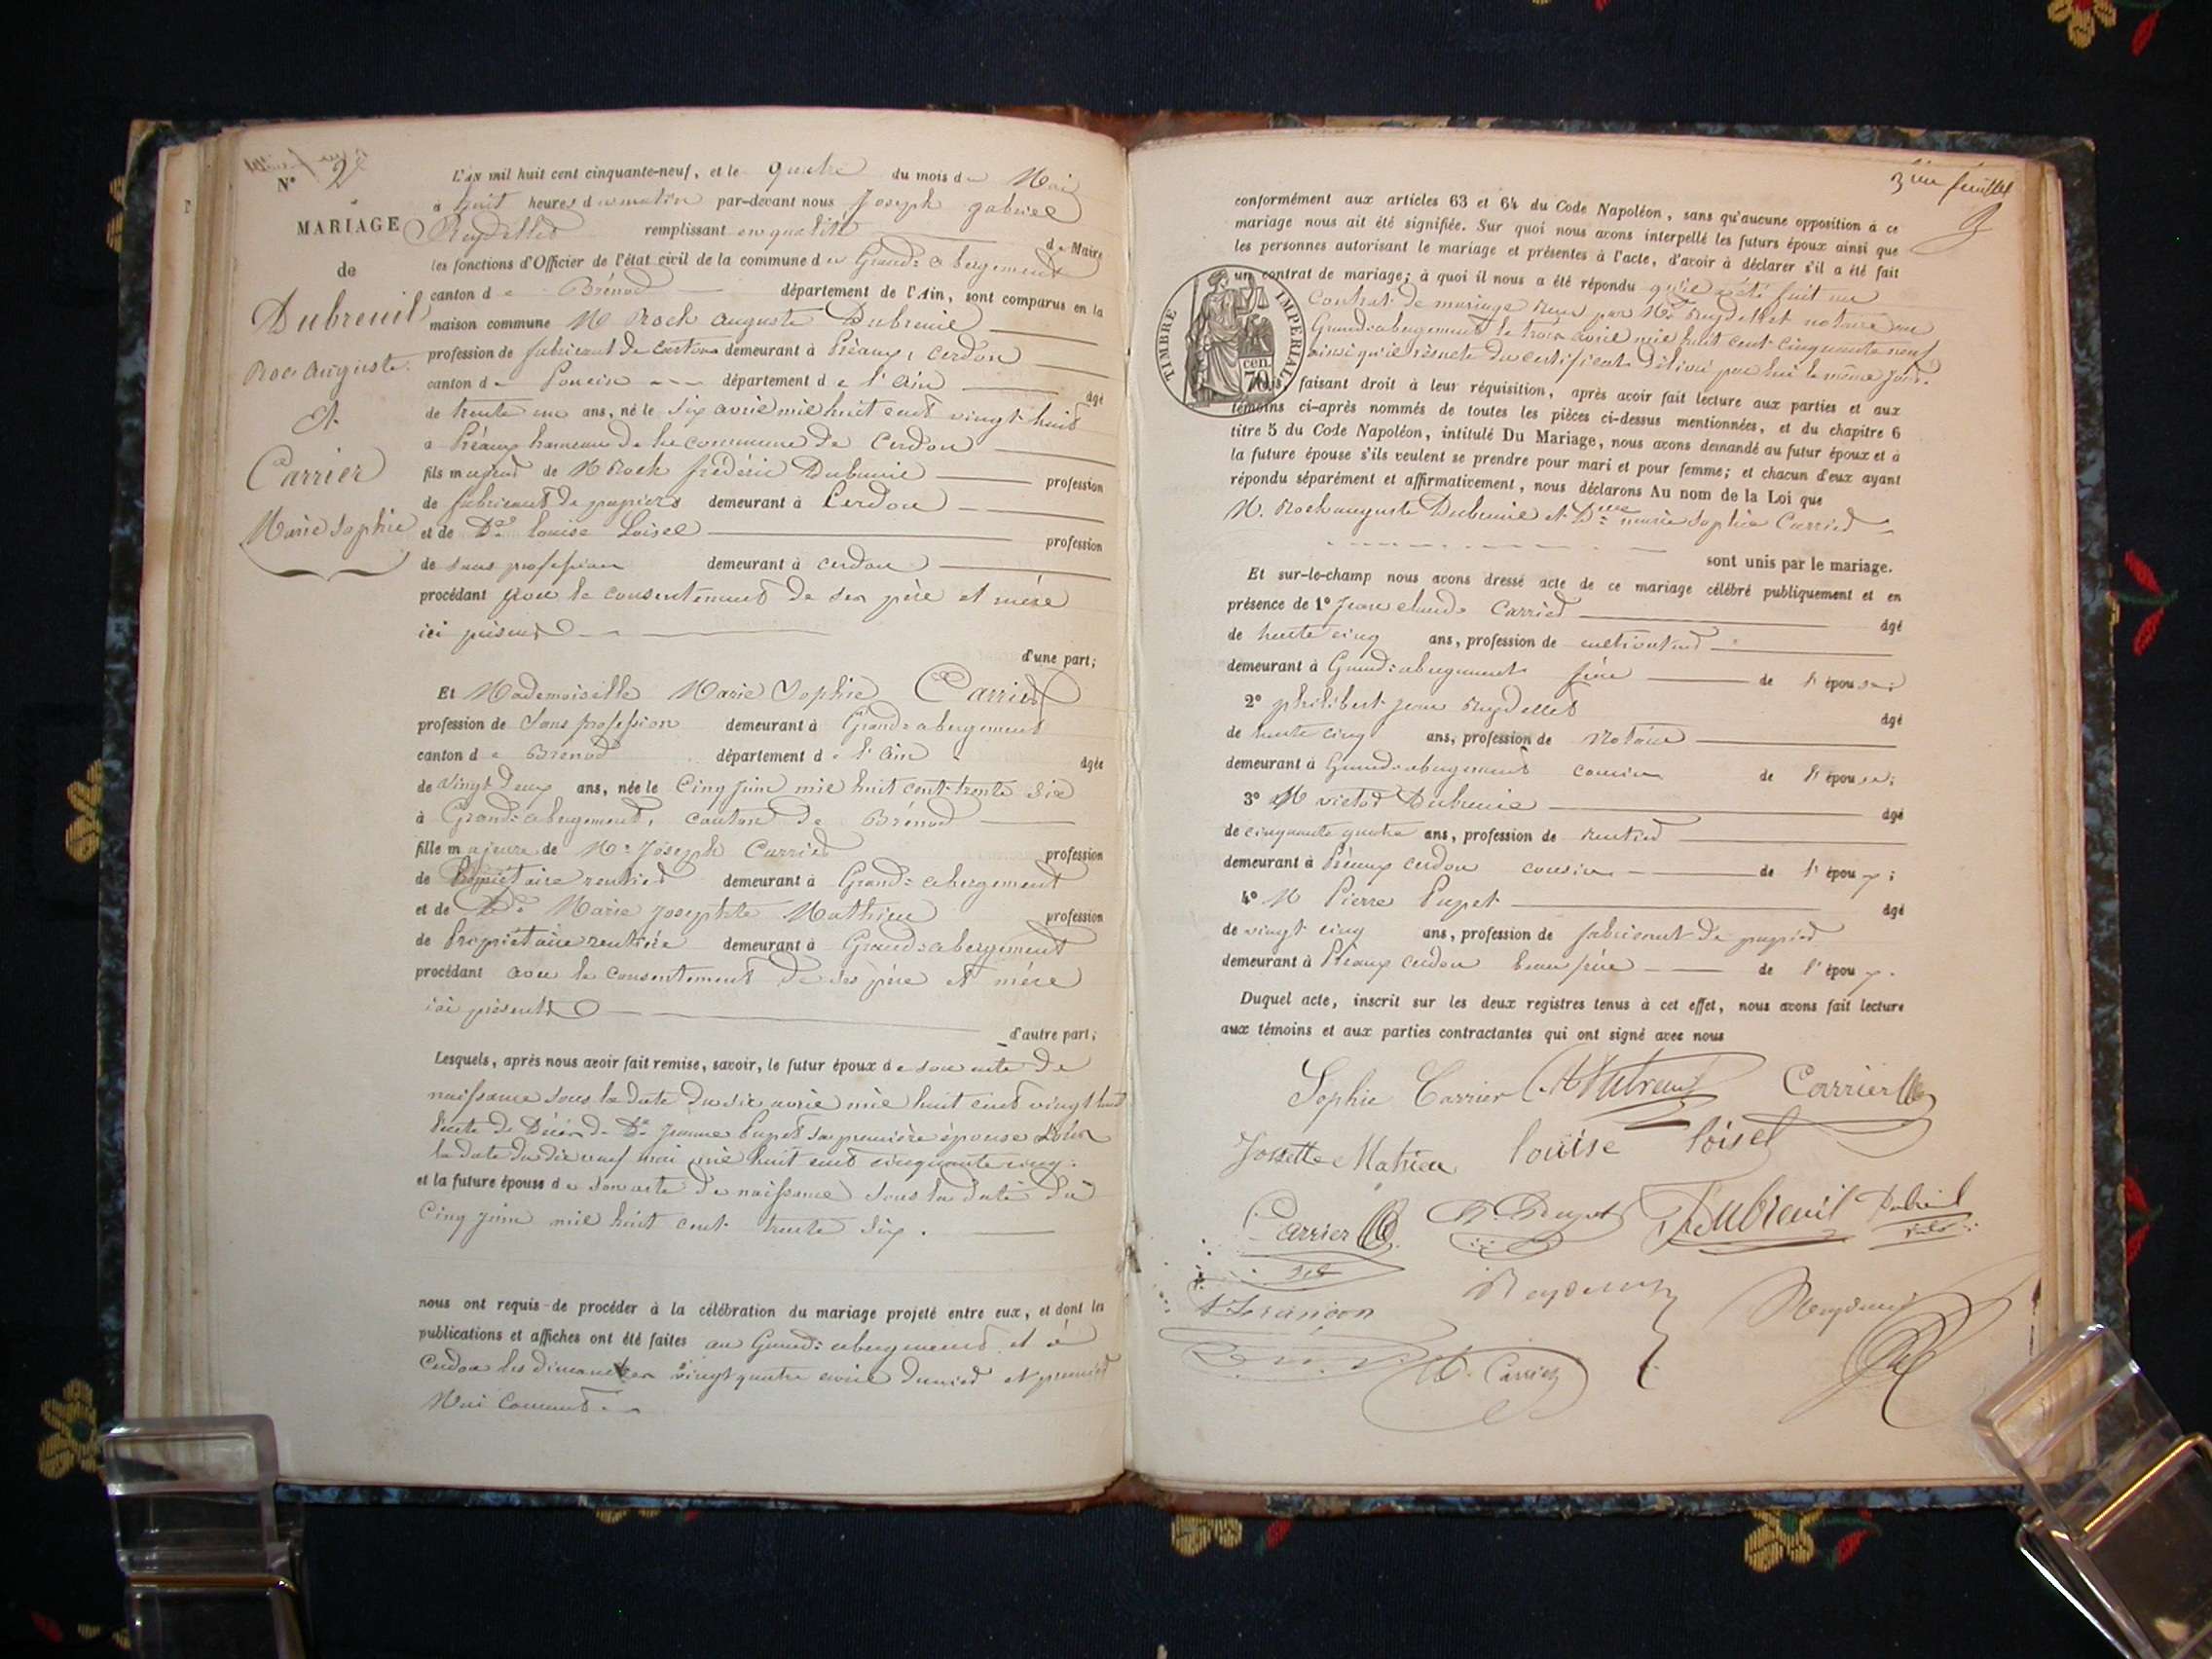 N° 2
MARIAGE
de
Dubreuil
Roc Auguste
et
Carrier
Marie Sophie
L'AN mil huit cent cinquante-neuf, et le quatre du mois de Mai
à huit heures du matin par-devant nous Joseph gabriel
Reydellet remplissant en qualité de Maire
les fonctions d'Officier de l'état civil de la commune de Grand=abergement
canton de Brénod département de l'Ain, sont comparus en la
maison commune M Rock auguste Dubreuil
profession de fabricant de cartons demeurant à Préaux, cerdon
canton de Poncin département de l'ain âgé
de trente un ans, né le six avril mil huit cent vingt huit
à Préaux hameau de la commune de Cerdon
fils majeur de M Rock frédéric Dubreuil profession
de fabricant de papiers demeurant à Cerdon
et de De louise Loisel profession
de sans profession demeurant à cerdon
procédant avec le consentement de ses père et mère
ici présents
d'une part;
Et Mademoiselle Marie Sophie Carrier
profession de Sans profession demeurant à Grand=abergement
canton de Brenod département de l'ain âgée
de vingt deux ans, née le Cinq juin mil huit cent trente six
à Grand=abergement, canton de Brénod
fille majeure de Mr Joseph Carrier profession
de Propriétaire rentier demeurant à Grand=abergement
et de De Marie Josephte Mathieu profession
de Propriétaire rentière demeurant à Grand=abergement
procédant avec le consentement de ses père et mère
ici présents
d'autre part;
Lesquels, après nous avoir fait remise, savoir, le futur époux de son acte de
naissance sous la date du six avril mil huit cent vingt huit
l'acte de Décès de De Jeanne Pupet sa première épouse sous
la date du dix neuf mai mil huit cent cinquante cinq.
et la future épouse de son acte de naissance sous la date du
Cinq juin mil huit cent trente six.
nous ont requis de procéder à la célébration du mariage projeté entre eux, et dont les
publications et affiches ont été faites au Grand=abergement et à
Cerdon les dimanches vingt quatre avril dernier et premier
Mai Courant.
3me feuillet
conformément aux articles 63 et 64 du Code Napoléon, sans qu'aucune opposition à ce
mariage nous ait été signifiée. Sur quoi nous avons interpellé les futurs époux ainsi que
les personnes autorisant le mariage et présentes à l'acte, d'avoir à déclarer s'il a été fait
un contrat de mariage; à quoi il nous a été répondu qu'il a été fait un
Contrat de mariage reçu par Me Reydellet notaire au
Grand=abergement le trois avril mil huit cent cinquante neuf
ainsi qu'il résulte du certificat délivré par lui le même jour.
TIMBRE IMPÉRIAL
cen. 70
Nous, faisant droit à leur réquisition, après avoir fait lecture aux parties et aux
témoins ci-après nommés de toutes les pièces ci-dessus mentionnées, et du chapitre 6
titre 5 du Code Napoléon, intitulé Du Mariage, nous avons demandé au futur époux et à
la future épouse s'ils veulent se prendre pour mari et pour femme; et chacun d'eux ayant
répondu séparément et affirmativement, nous déclarons Au nom de la Loi que
M. Rock auguste Dubreuil et Delle marie Sophie Carrier
sont unis par le mariage.
Et sur-le-champ nous avons dressé acte de ce mariage célébré publiquement et en
présence de 1° Jean claude Carrier âgé
de trente cinq ans, profession de cultivateur
demeurant à Grand=abergement frère de l'épouse;
2° philibert jean Reydellet âgé
de trente cinq ans, profession de Notaire
demeurant à Grand=abergement cousin de l'épouse;
3° M victor Dubreuil âgé
de cinquante quatre ans, profession de rentier
demeurant à Préaux cerdon cousin de l'époux;
4° M Pierre Pupet âgé
de vingt cinq ans, profession de fabricant de papier
demeurant à Préaux cerdon beau frère de l'époux.
Duquel acte, inscrit sur les deux registres tenus à cet effet, nous avons fait lecture
aux témoins et aux parties contractantes qui ont signé avec nous
Sophie Carrier ADubreuil Carrier
Josette Mathieu louise loisel
Carrier P. Pupet Dubreuil Dubreuil
Reydellet Reydellet
Carrier